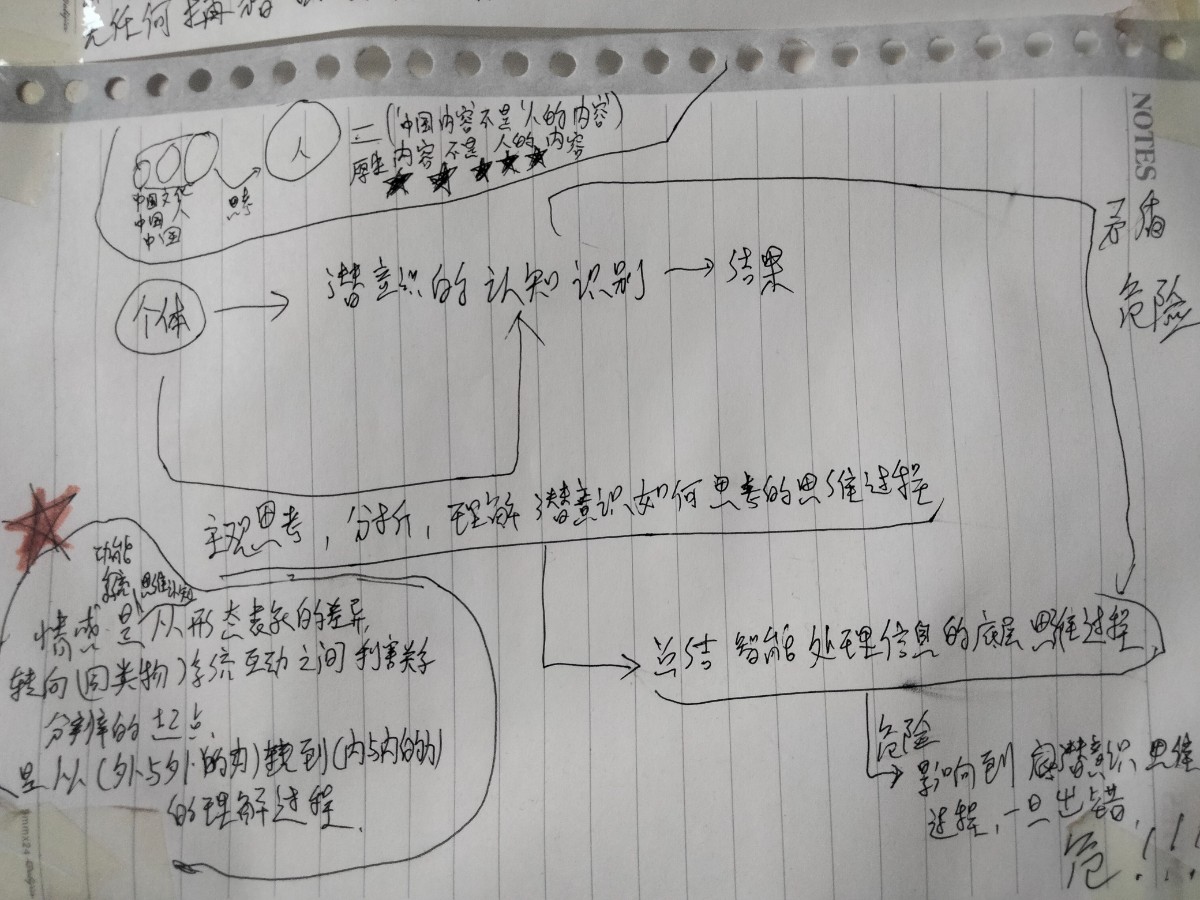 无任何
NOTES
("中国内容"不是"人的内容")
原生内容 不是 人的内容
人
中国文化
中国人
中国
思考
矛盾
危险
个体
潜意识的认知识别
结果
主观思考,分析,理解潜意识如何思考的思维过程
功能
系统 思维认知
情感是从形态表象的差异,
转向(同类物)系统互动之间利害关系
分辨的起点,
是从(外与外的力)转到(内与内的力)
的理解过程.
总结 智能处理信息的底层思维过程
危险
影响到 底潜意识思维
过程,一旦出错,
危!!!